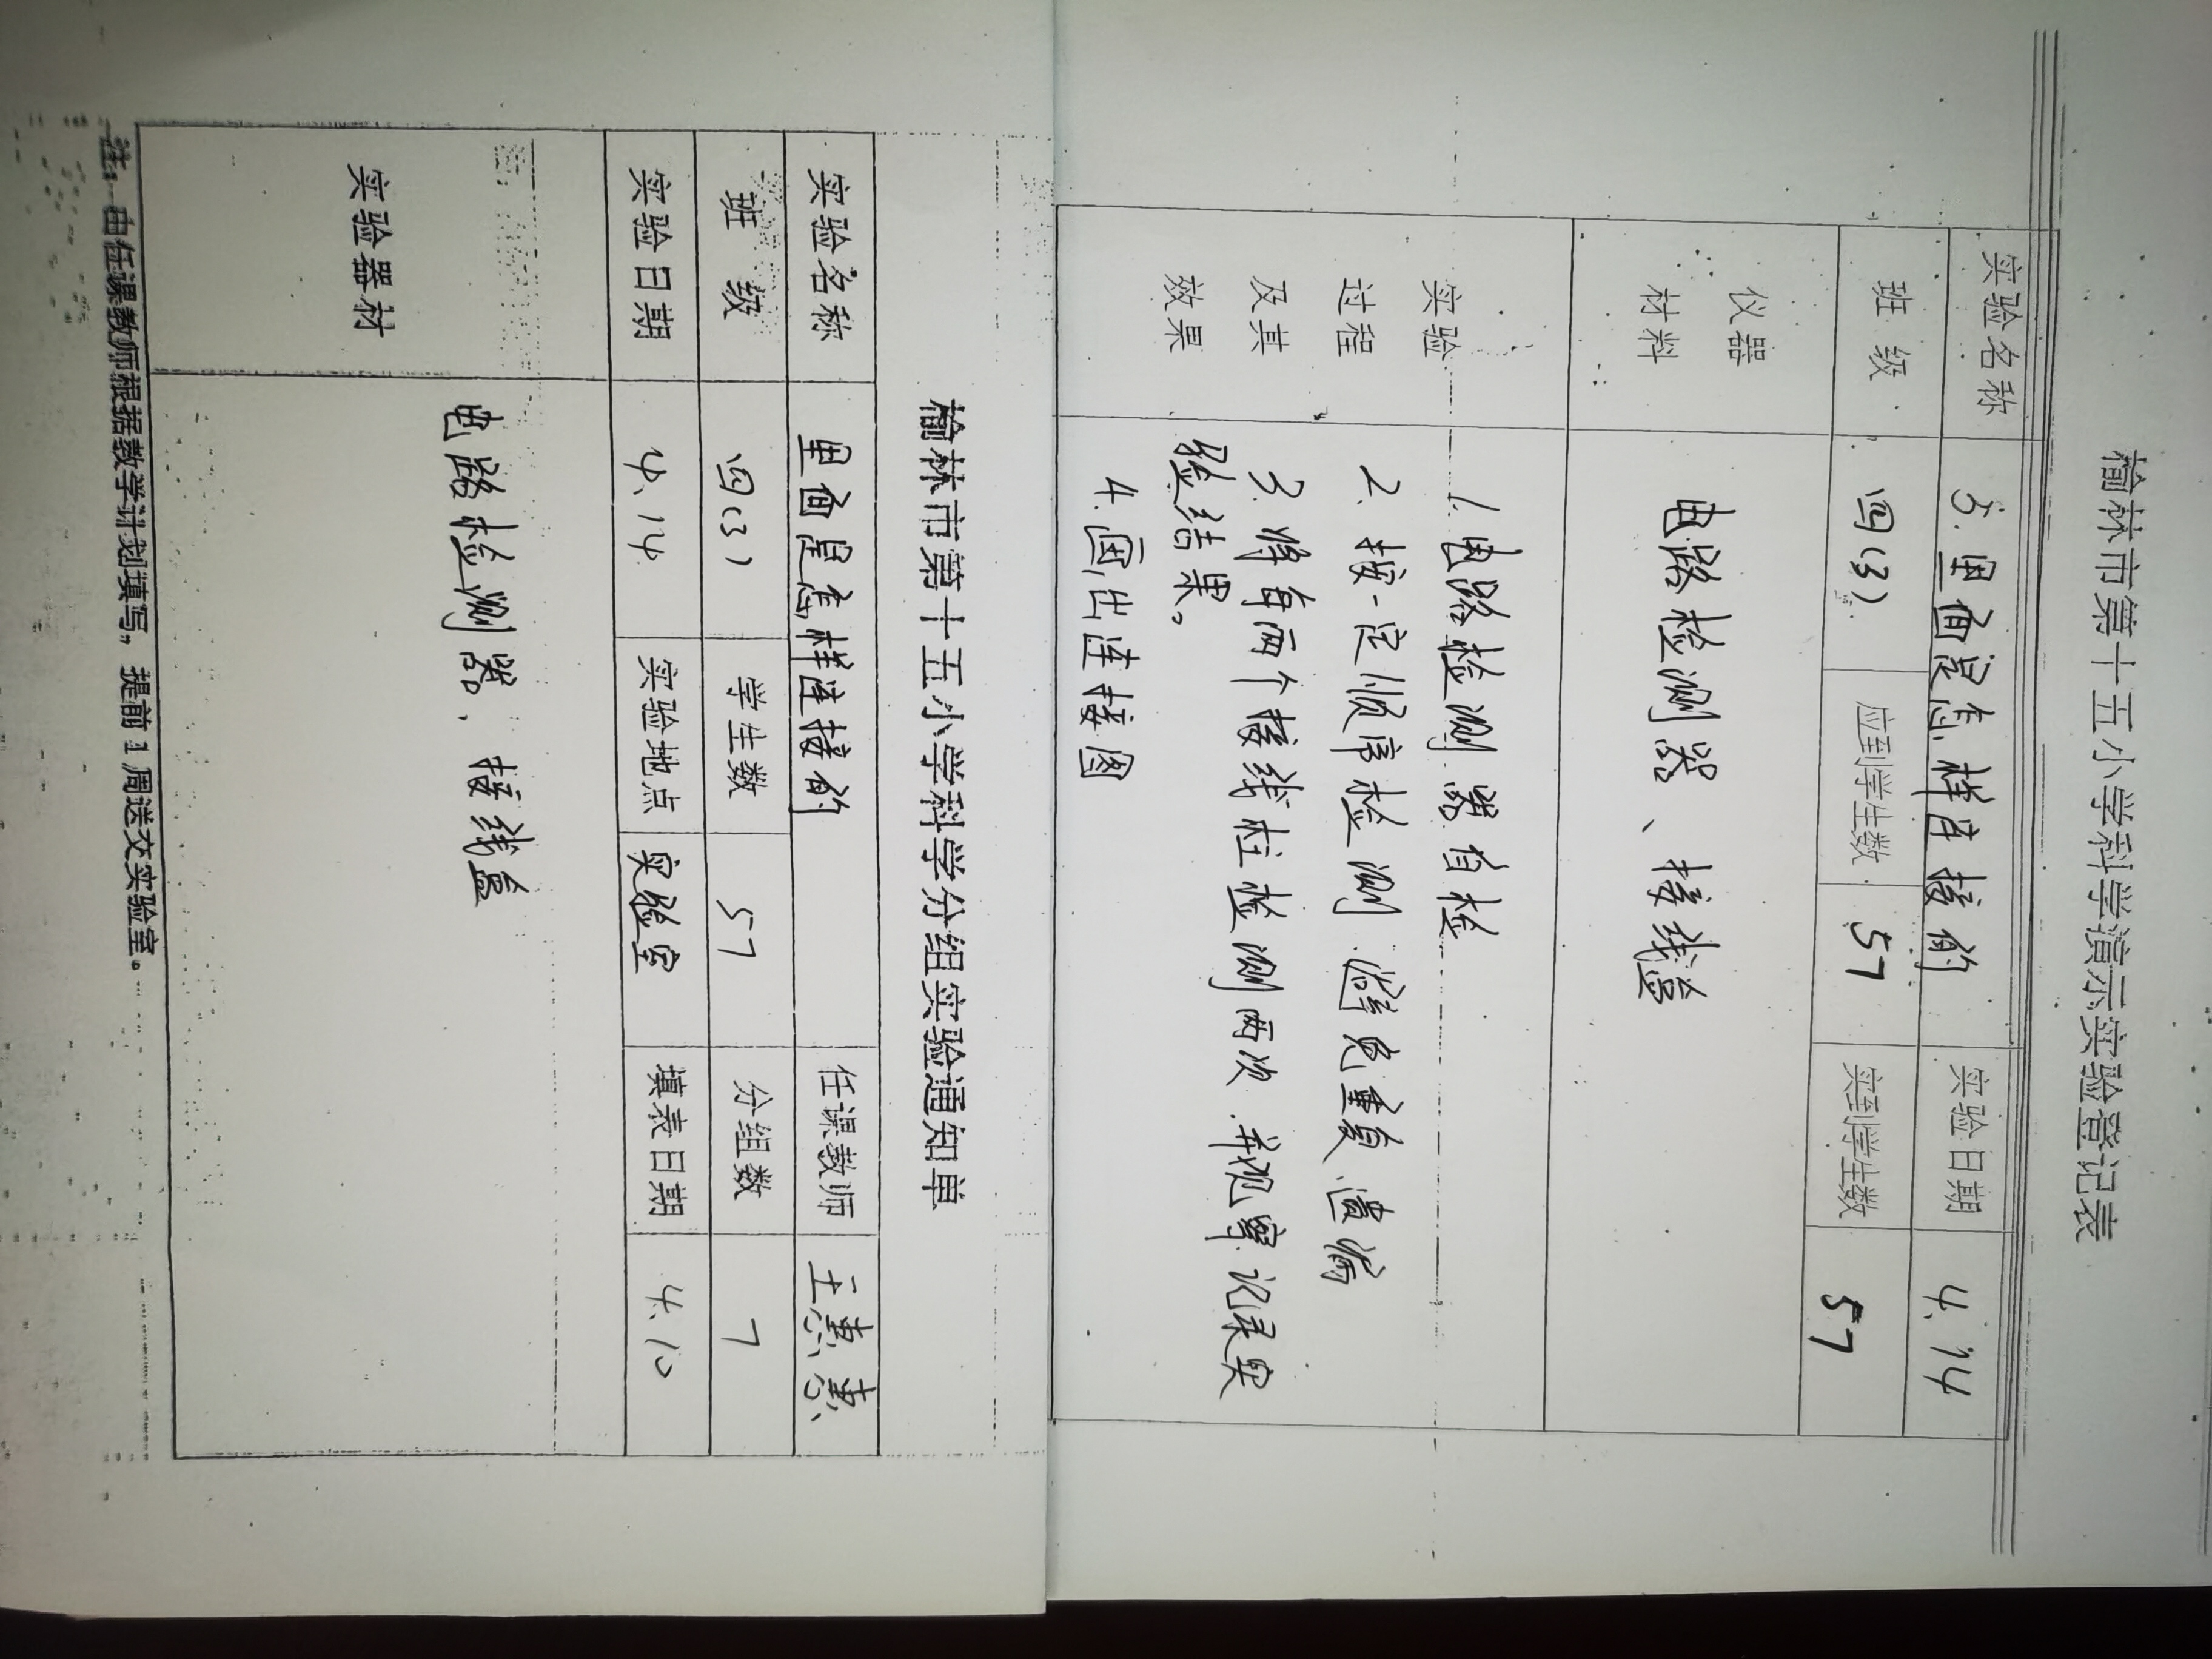 榆林市第十五小学科学演示实验登记表
实验名称 5.里面是怎样连接的 实验日期 4.14
班 级 四(3) 应到学生数 57 实到学生数 57
仪器 材料 电路检测器、接线盒
实验 过程 及其 效果
1.电路检测器自检
2.按一定顺序检测 避免重复.遗漏
3.将每两个接线柱检测两次.并观察.记录实
验结果。
4.画出连接图
榆林市第十五小学科学分组实验通知单
实验名称 里面是怎样连接的 任课教师
班 级 四(3) 学生数 57 分组数 7
实验日期 4.14 实验地点 实验室 填表日期 4.10
实验器材 电路检测器、接线盒
注:由任课教师根据教学计划填写,提前1周送交实验室。